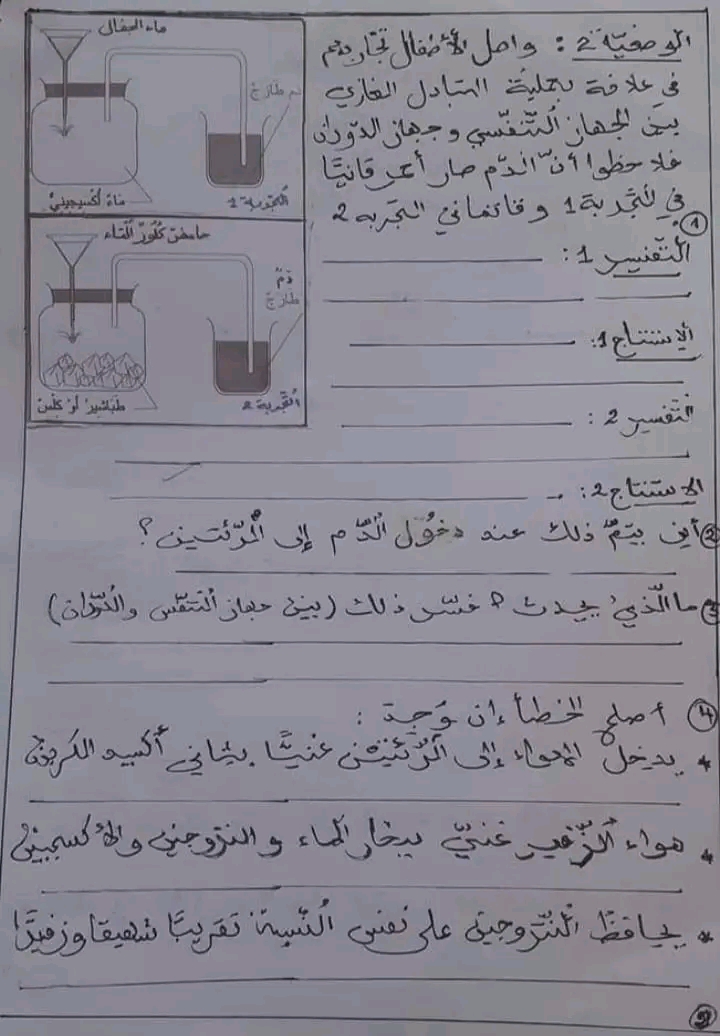 الوضعيّة 2: واصل الأطفال تجاربهم
في علاقة بعملية التبادل الغازي
بين الجهاز التّنفّسي وجهاز الدّوران
فلاحظوا أنّ الدّم صار أحمر قانيًا
في التّجربة 1 وقاتما في التجربة 2
ماء الجفال
دم طازج
ماء أكسيجيني
التجربة 1
حامض كلور الماء
دم طازج
طباشير أو كلس
التجربة 2
① التّفسير 1:
الاستنتاج 1:
التّفسير 2:
الاستنتاج 2:
② أين يتمّ ذلك عند دخول الدّم إلى الرّئتين؟
③ ما الّذي يحدث؟ فسّر ذلك (بين جهاز التّنفّس والدّوران)
④ أصلح الخطأ إن وجد:
* يدخل الهواء إلى الرّئتين غنيًّا بثاني أكسيد الكربون
* هواء الزّفير غنيّ ببخار الماء والنتروجين والأكسجين
* يحافظ النّتروجين على نفس النّسبة تقريبًا شهيقا وزفيرًا